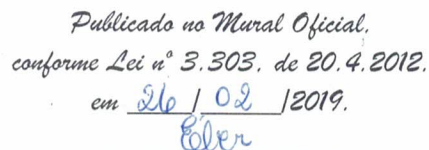 Publicado no Mural Oficial,
conforme Lei nº 3.303, de 20.4.2012,
em 26 / 02 /2019.
Eber